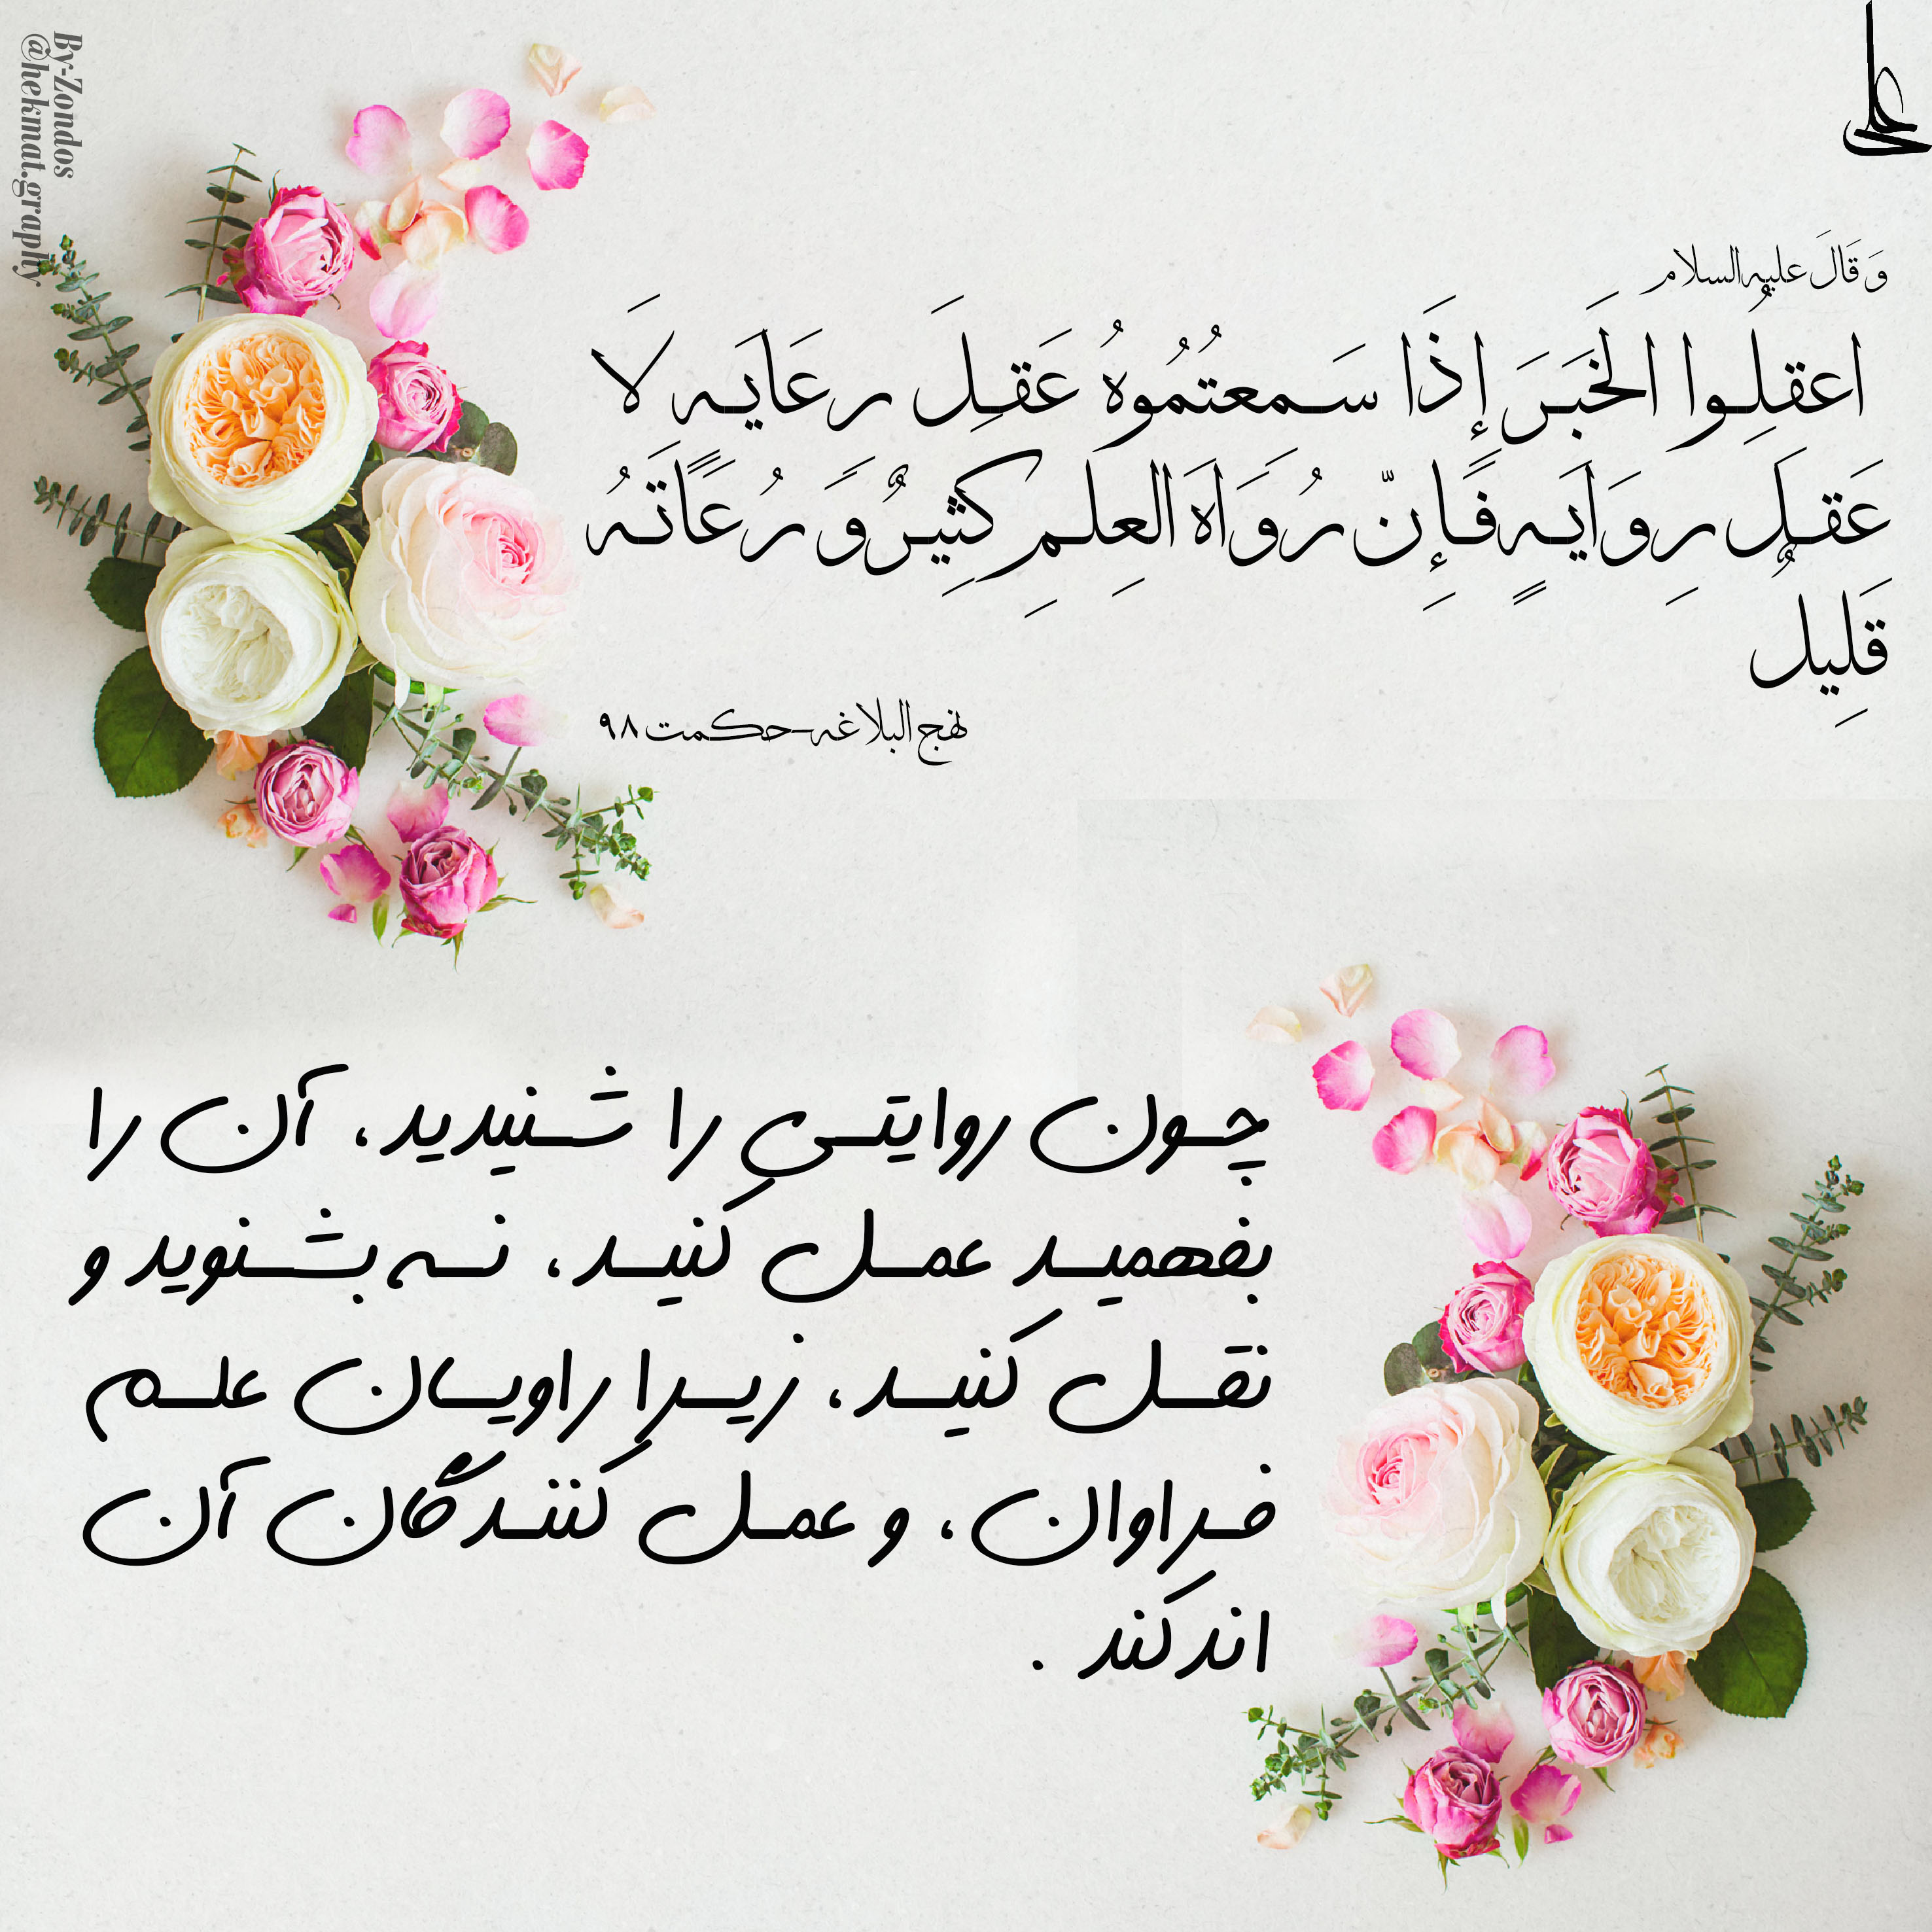 علی
وَ قَالَ علیه السلام
اعقلِوُا الخَبَرَ إذَا سَمِعتُمُوهُ عَقلَ رعَایَه لَا
عَقلَ رِوَایَهٍ فَإِنّ رُوَاَهَ العِلمِ کَثِیِرٌ وَ رُعَاتَهُ
قَلِیلٌ
نهج البلاغه-حکمت ۹۸
چون روایتی را شنیدید، آن را
بفهمید عمل کنید، نه بشنوید و
نقل کنید، زیرا راویان علم
فراوان، و عمل کنندگان آن
اندکند .
By-Zondos
@hekmat.graphy